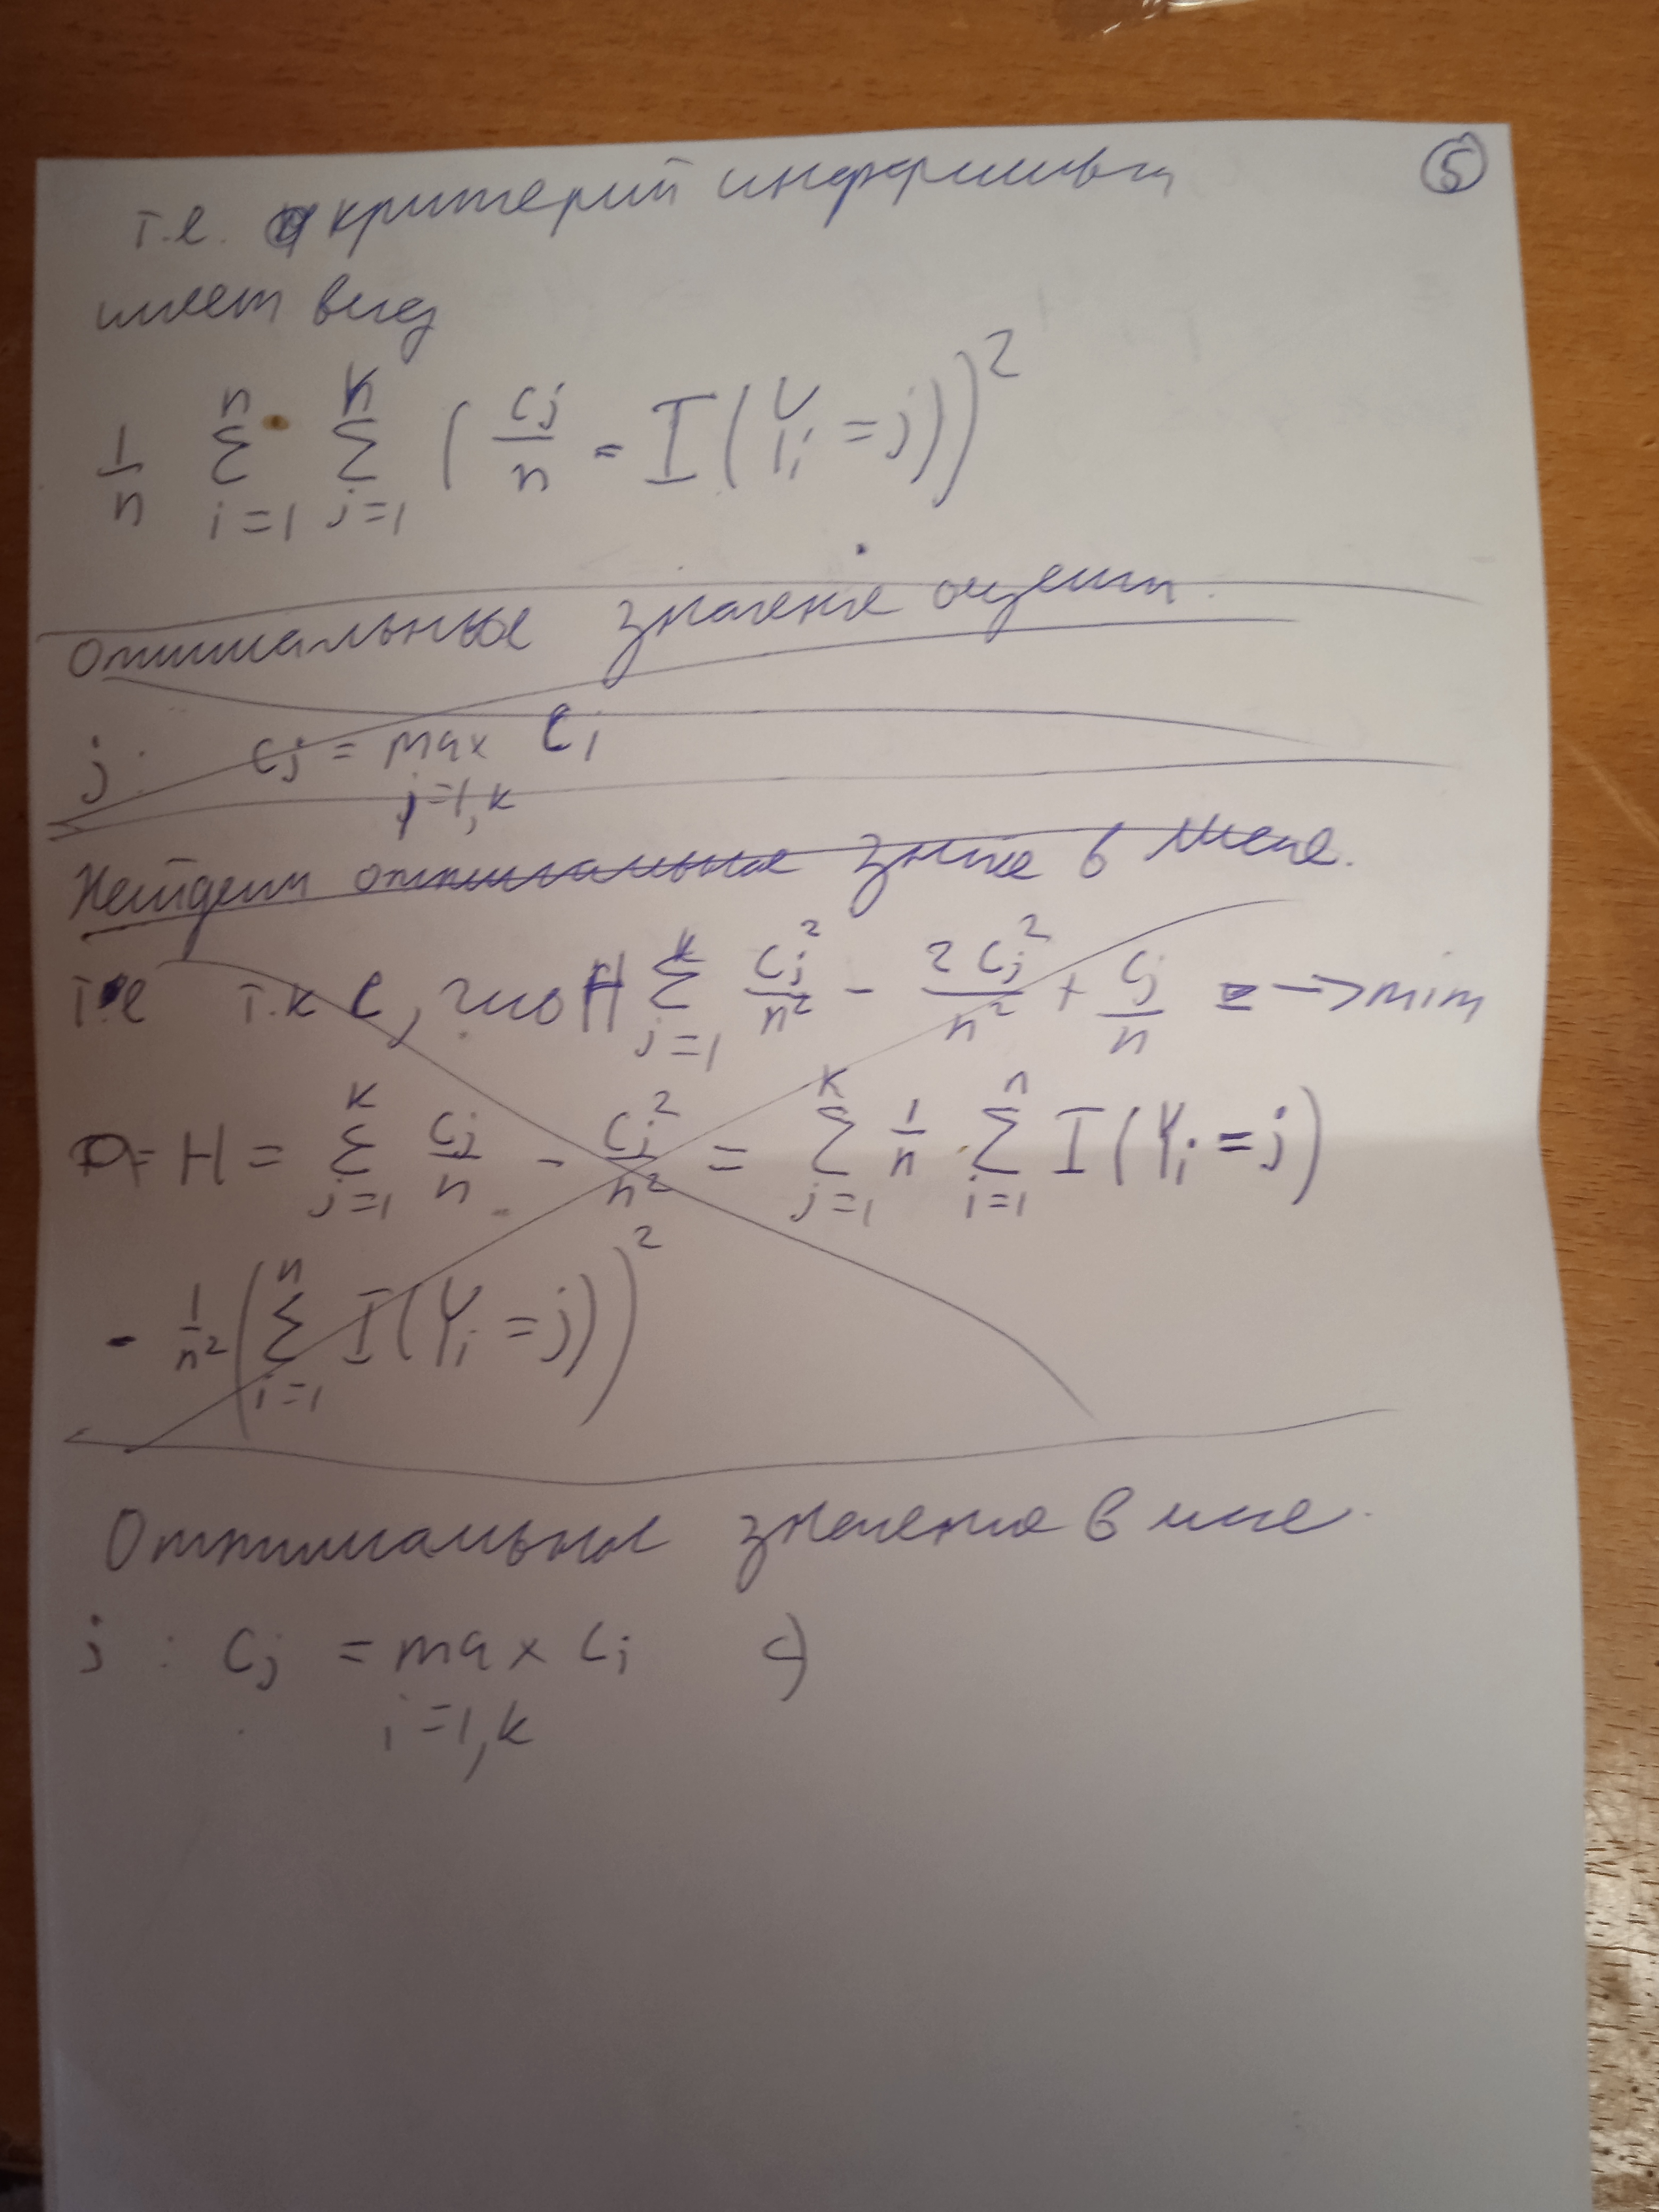 5
т.е. критерий информ
имеет вид
1/n Σ_{i=1}^{n} Σ_{j=1}^{k} (c_j/n - I(Y_i = j))^2
оптимальное значение оценки.
j : c_j = max_{j=1,k} c_i
Найдем оптимальное знчие в листе.
т.е т.к , что H Σ_{j=1}^{k} c_j^2/n^2 - 2c_j^2/n^2 + c_j/n → min
H = Σ_{j=1}^{k} c_j/n - c_j^2/n^2 = Σ_{j=1}^{k} 1/n Σ_{i=1}^{n} I(Y_i = j)
- 1/n^2 (Σ_{i=1}^{n} I(Y_i = j))^2
Оптимальное значение в листе.
j : c_j = max_{i=1,k} c_i